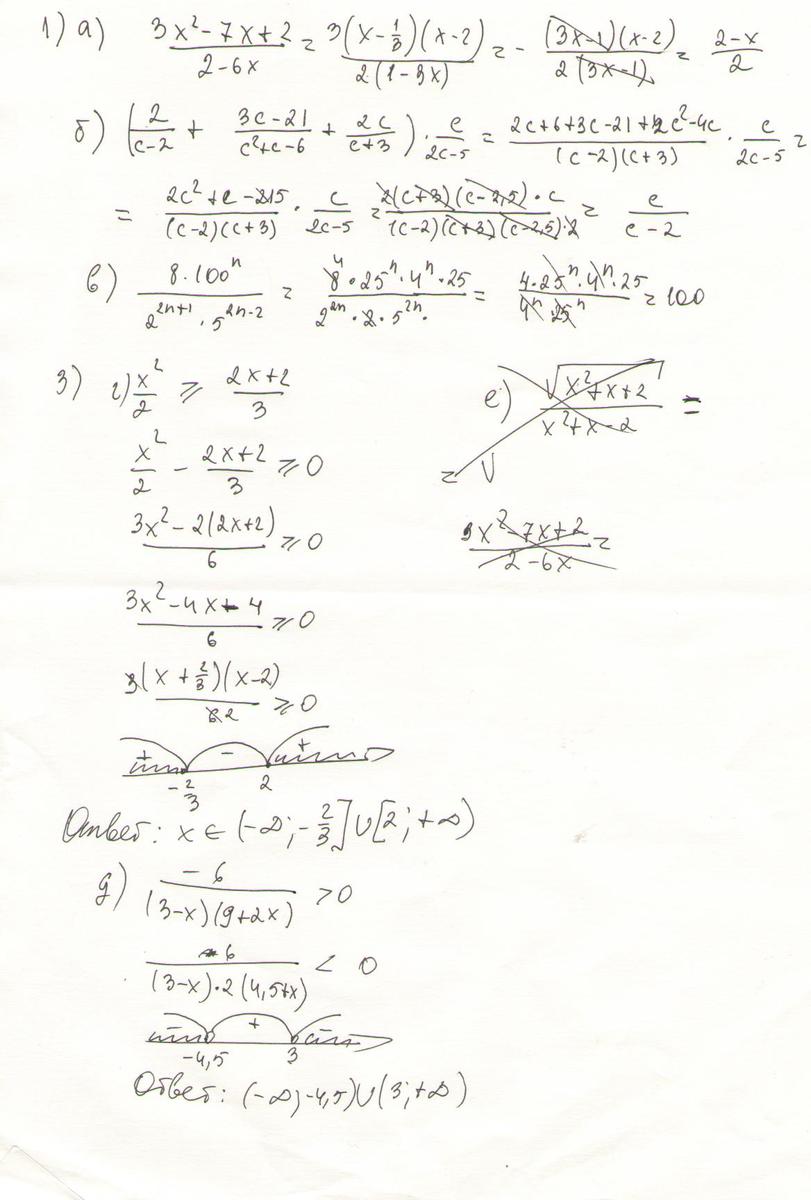 1) а) (3x² - 7x + 2)/(2 - 6x) = 3(x - 1/3)(x - 2)/(2(1 - 3x)) = - (3x-1)(x-2)/(2(3x-1)) = (2-x)/2
б) (2/(c-2) + (3c-21)/(c²+c-6) + 2c/(c+3)) · c/(2c-5) = (2c+6+3c-21+2c²-4c)/((c-2)(c+3)) · c/(2c-5) =
= (2c²+c-15)/((c-2)(c+3)) · c/(2c-5) = 2(c+3)(c-2,5)·c/((c-2)(c+3)(c-2,5)·2) = c/(c-2)
в) 8·100ⁿ/(2²ⁿ⁺¹·5²ⁿ⁻²) = 8·25ⁿ·4ⁿ·25/(2²ⁿ·2·5²ⁿ·) = 4·25ⁿ·4ⁿ·25/(4ⁿ·25ⁿ) = 100
3) г) x²/2 ⩾ (2x+2)/3
x²/2 - (2x+2)/3 ⩾ 0
(3x² - 2(2x+2))/6 ⩾ 0
(3x² - 4x - 4)/6 ⩾ 0
3(x + 2/3)(x-2)/(6 2) ⩾ 0
+ - +
-2/3 2
Ответ: x ∈ (-∞; -2/3] ∪ [2; +∞)
д) -6/((3-x)(9+2x)) > 0
6/((3-x)·2(4,5+x)) < 0
- + -
-4,5 3
Ответ: (-∞; -4,5) ∪ (3; +∞)
е) √(x²+x+2)/(x²+x-2) =
= √
(3x² - 7x + 2)/(2 - 6x) =